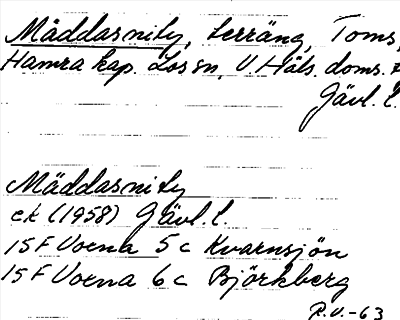 Mäddasnity, terräng, Toms,
Hamra kap. Lossn, V. Häls. doms.
Gävl. l.
Mäddasnity
ek (1958) Gävl. l.
15F Voxna 5c Kvarnsjön
15F Voxna 6c Björkberg
R.V.-63